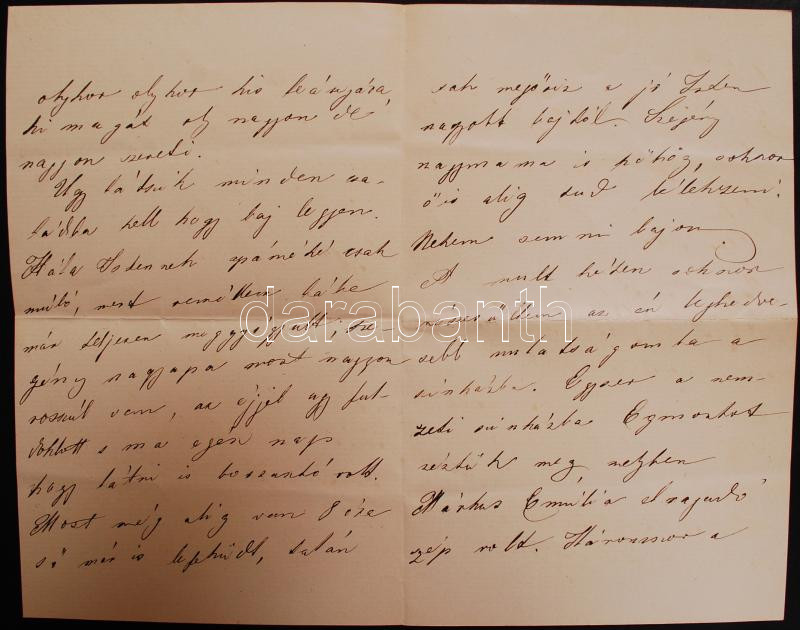 olykor olykor kis leányára
ki magát oly nagyon
nagyon szereti.
Ugy látszik minden csa-
ládba kell hogy baj legyen.
Hála Istennek csak
múló, mert remélem lába
már teljesen meggyógyult; sze-
gény nagyapa most nagyon
rosszúl van, az éjjel ugy ful-
doklott s ma egész nap
hogy látni is bosszantó volt.
Most még alig van 8 óra
s ő már is lefeküdt, talán
csak megőriz a jó Isten
nagyobb bajtól. Szegény
nagymama is köhög, sokszor
ő is alig tud lélekzeni.
Nekem semmi bajom.
A mult héten sokszor
az én legkedve-
sebb mulatságomba a
szinházba. Egyszer a nem-
zeti szinházba Egmontot
néztük meg, melyben
Márkus Emilia elragadó
szép volt. Háromszor a
darabanth